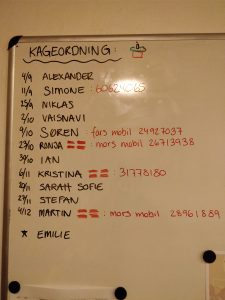 KAGEORDNING:
4/9 ALEXANDER
11/9 SIMONE: 60624065
25/9 NIKLAS
2/10 VAISNAVI
9/10 SØREN: fars mobil 24927037
23/10 RONJA: mors mobil 26713938
30/10 IAN
6/11 KRISTINA: 31778180
20/11 SARAH SOFIE
27/11 STEFAN
4/12 MARTIN: mors mobil 28961889
* EMILIE